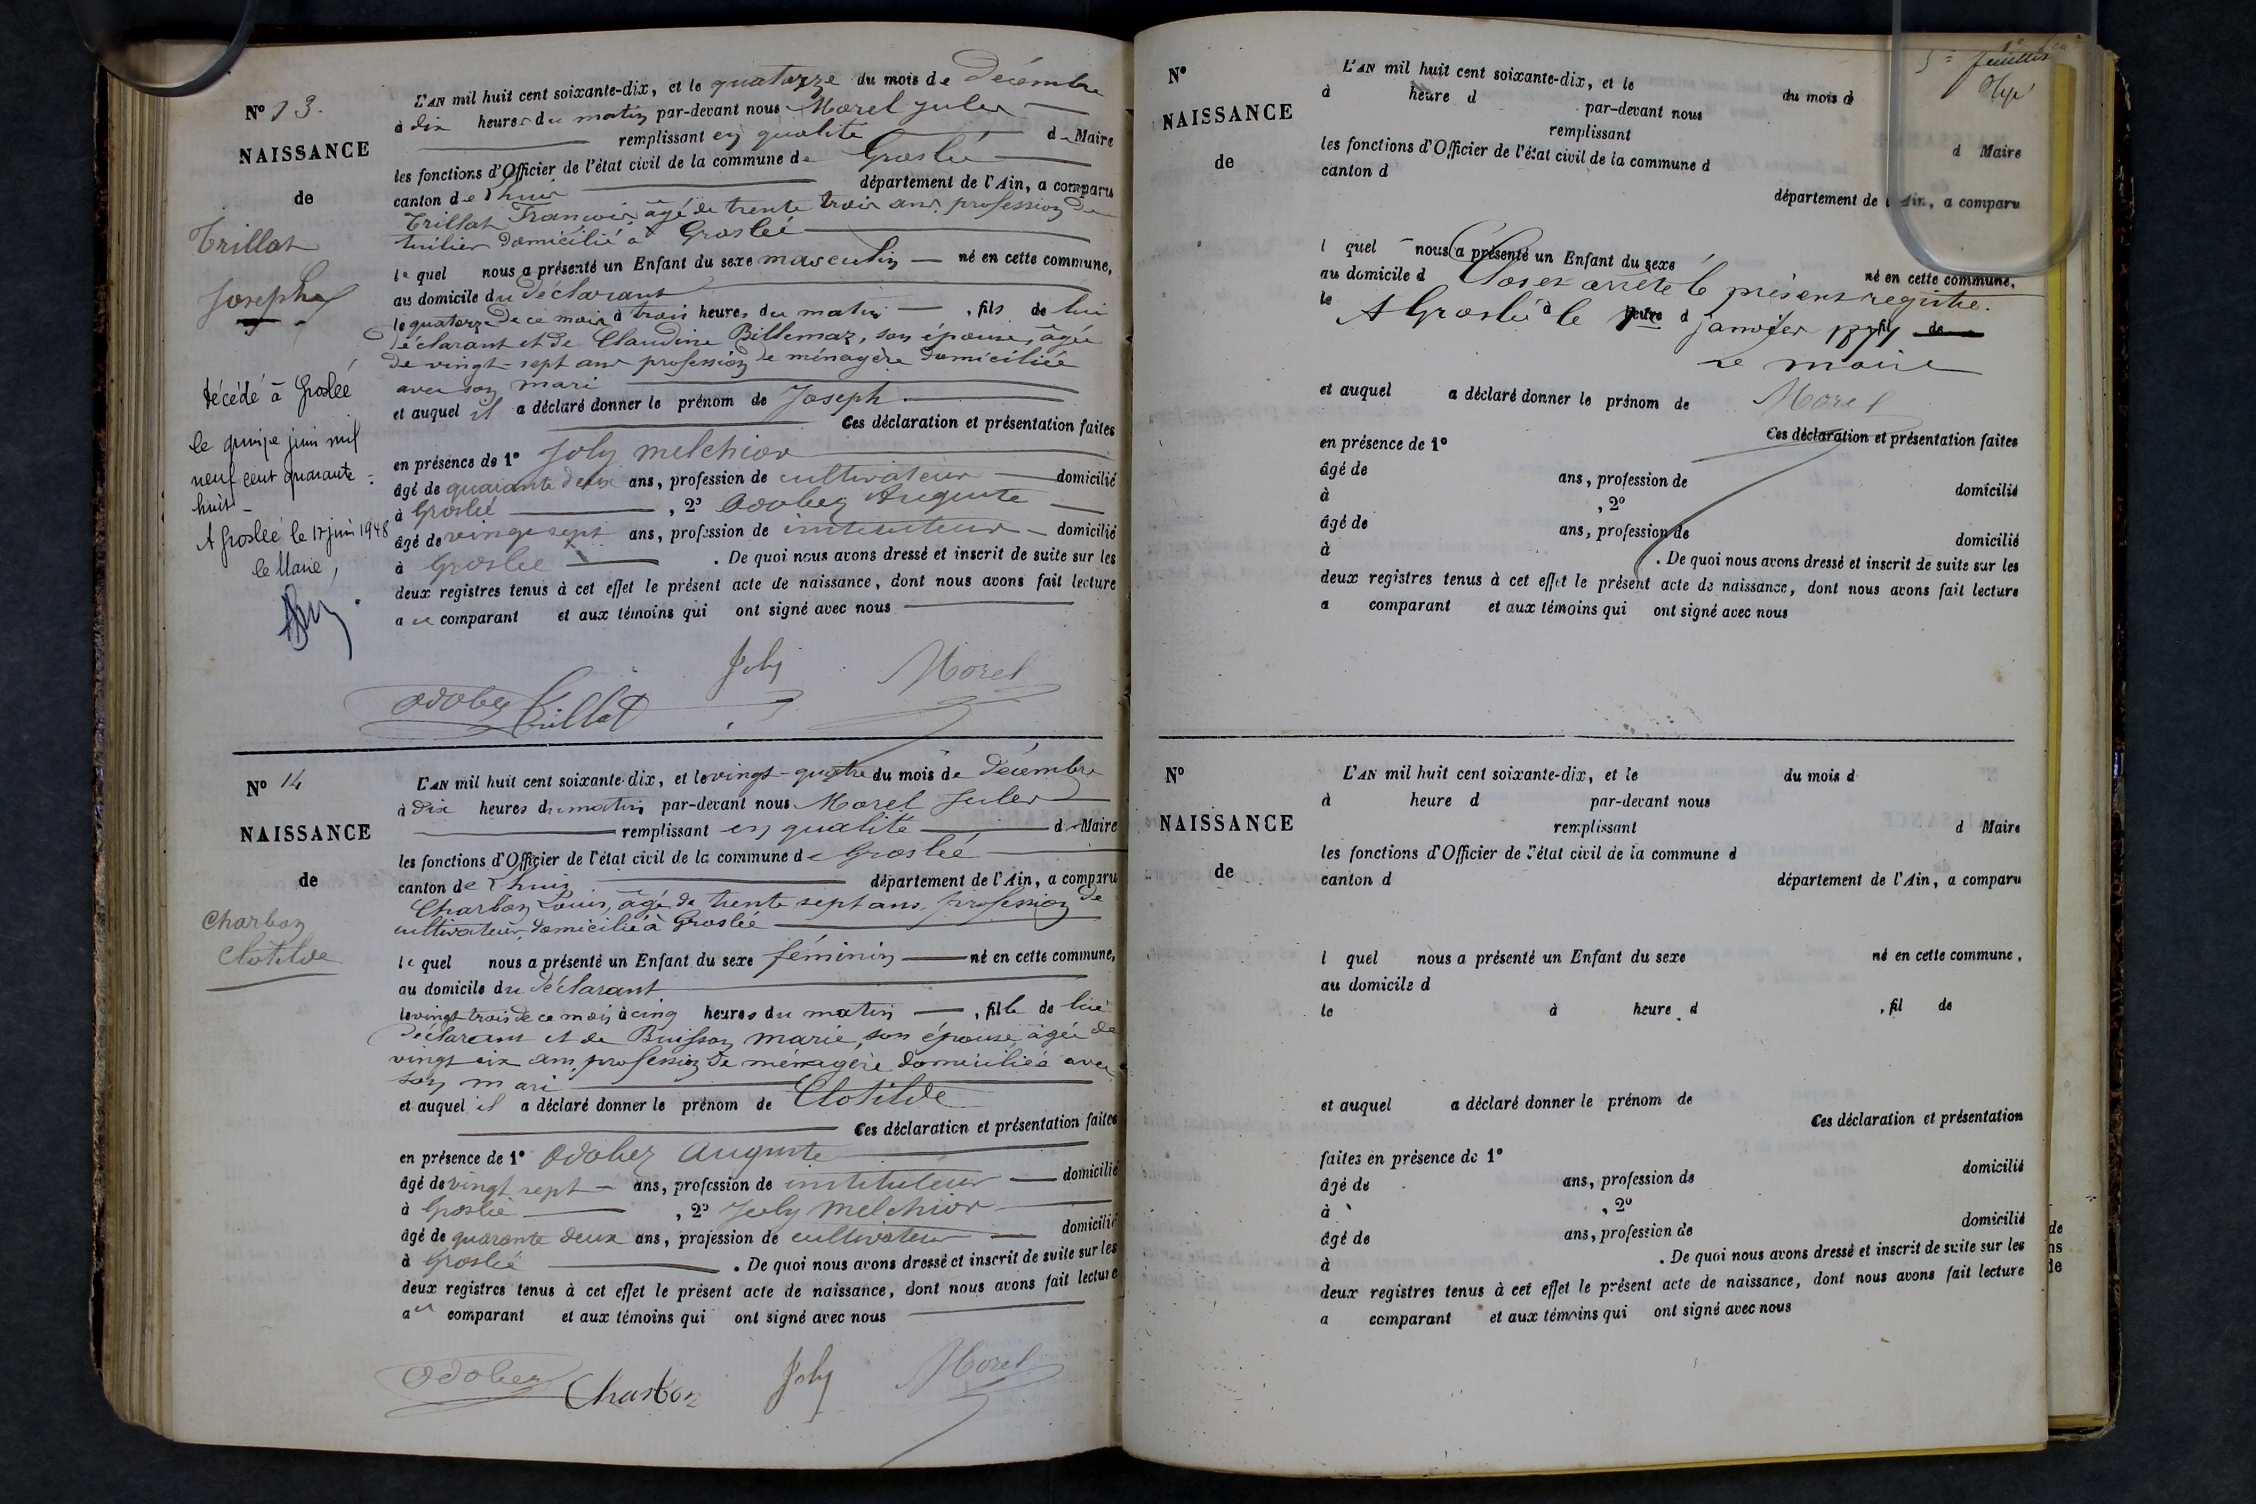 N° 13.
NAISSANCE
de
Trillat
Joseph
décédé à Groslée
le quinze juin mil
neuf cent quarante
huit
A Groslée le 17 juin 1948
le Maire,
L'AN mil huit cent soixante-dix, et le quatorze du mois de Décembre
à dix heures du matin par-devant nous Morel Jules
remplissant en qualité d Maire
les fonctions d'Officier de l'état civil de la commune de Groslée
canton de Lhuis département de l'Ain, a comparu
Trillat François, âgé de trente trois ans, profession de
tuilier domicilié à Groslée
lequel nous a présenté un Enfant du sexe masculin né en cette commune,
au domicile du déclarant
le quatorze de ce mois à trois heures du matin, fils de lui
déclarant et de Claudine Billemaz, son épouse, âgée
de vingt-sept ans profession de ménagère domiciliée
avec son mari
et auquel il a déclaré donner le prénom de Joseph
Ces déclaration et présentation faites
en présence de 1° Joly Melchior
âgé de quarante deux ans, profession de cultivateur domicilié
à Groslée, 2° Odobez Auguste
âgé de vingt sept ans, profession de instituteur domicilié
à Groslée. De quoi nous avons dressé et inscrit de suite sur les
deux registres tenus à cet effet le présent acte de naissance, dont nous avons fait lecture
au comparant et aux témoins qui ont signé avec nous
Joly Morel
Odobez Trillat
N° 14
NAISSANCE
de
Charbon
Clotilde
L'AN mil huit cent soixante-dix, et le vingt-quatre du mois de Décembre
à dix heures du matin par-devant nous Morel Jules
remplissant en qualité d Maire
les fonctions d'Officier de l'état civil de la commune de Groslée
canton de Lhuis département de l'Ain, a comparu
Charbon Louis, âgé de trente sept ans, profession de
cultivateur, domicilié à Groslée
lequel nous a présenté un Enfant du sexe féminin né en cette commune,
au domicile du déclarant
le vingt trois de ce mois à cinq heures du matin, fille de lui
déclarant et de Buisson Marie, son épouse, âgée de
vingt six ans, profession de ménagère domiciliée avec
son mari
et auquel il a déclaré donner le prénom de Clotilde
Ces déclaration et présentation faites
en présence de 1° Odobez Auguste
âgé de vingt sept ans, profession de instituteur domicilié
à Groslée, 2° Joly Melchior
âgé de quarante deux ans, profession de cultivateur domicilié
à Groslée. De quoi nous avons dressé et inscrit de suite sur les
deux registres tenus à cet effet le présent acte de naissance, dont nous avons fait lecture
au comparant et aux témoins qui ont signé avec nous
Odobez Charbon Joly Morel
5e feuillet
N°
NAISSANCE
de
L'AN mil huit cent soixante-dix, et le du mois d
à heure d par-devant nous
remplissant d Maire
les fonctions d'Officier de l'état civil de la commune d
canton d département de l'Ain, a comparu
l quel nous a présenté un Enfant du sexe né en cette commune,
au domicile d
Clos et arrêté le présent registre.
le à heure d fil de
A Groslée le 1er janvier 1871
Le maire
et auquel a déclaré donner le prénom de
Morel
Ces déclaration et présentation faites
en présence de 1°
âgé de ans, profession de domicilié
à , 2°
âgé de ans, profession de domicilié
à . De quoi nous avons dressé et inscrit de suite sur les
deux registres tenus à cet effet le présent acte de naissance, dont nous avons fait lecture
a comparant et aux témoins qui ont signé avec nous
N°
NAISSANCE
de
L'AN mil huit cent soixante-dix, et le du mois d
à heure d par-devant nous
remplissant d Maire
les fonctions d'Officier de l'état civil de la commune d
canton d département de l'Ain, a comparu
l quel nous a présenté un Enfant du sexe né en cette commune,
au domicile d
le à heure d , fil de
et auquel a déclaré donner le prénom de
Ces déclaration et présentation
faites en présence de 1°
âgé de ans, profession de domicilié
à , 2°
âgé de ans, profession de domicilié
à . De quoi nous avons dressé et inscrit de suite sur les
deux registres tenus à cet effet le présent acte de naissance, dont nous avons fait lecture
a comparant et aux témoins qui ont signé avec nous
de
ns
de